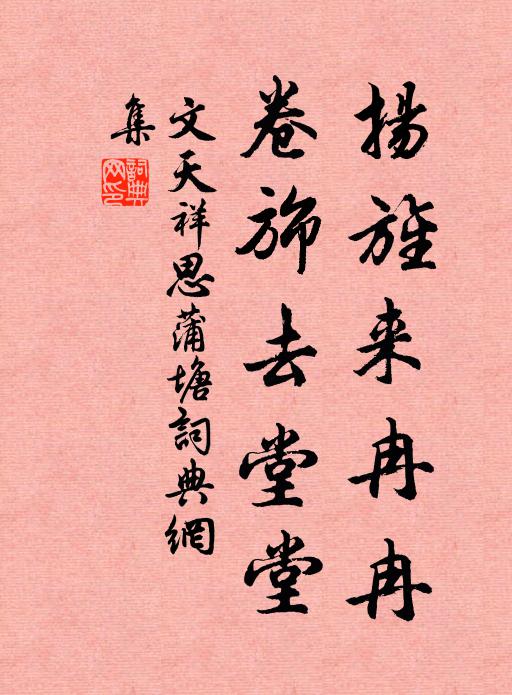 揚旌来冉冉
卷斾去堂堂
文天祥思蒲塘詞典網
集
詞典网印